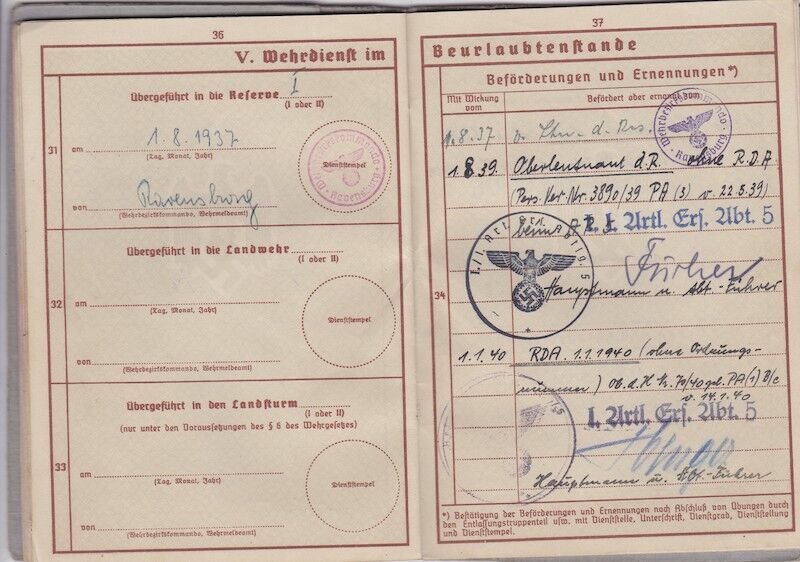 36
V. Wehrdienst im
Übergeführt in die Reserve I
(I oder II)
31
am 1. 8. 1937
(Tag, Monat, Jahr)
Dienststempel
Wehrbezirkskommando Ravensburg
von Ravensburg
(Wehrbezirkskommando, Wehrmeldeamt)
Übergeführt in die Landwehr
(I oder II)
32
am
(Tag, Monat, Jahr)
Dienststempel
von
(Wehrbezirkskommando, Wehrmeldeamt)
Übergeführt in den Landsturm
(I oder II)
(nur unter den Voraussetzungen des § 6 des Wehrgesetzes)
33
am
(Tag, Monat, Jahr)
Dienststempel
von
(Wehrbezirkskommando, Wehrmeldeamt)
37
Beurlaubtenstande
Beförderungen und Ernennungen*)
Mit Wirkung vom
Befördert oder ernannt zum
Wehrbezirkskommando Ravensburg
1.8.37 d. Res.
1.8.39 Oberleutnant d.R. ohne R.D.A
(Pers. Ver. Nr. 3890/39 PA (3) v. 22.8.39)
I. Artl. Ers. Abt. 5
34
Hauptmann u. Abt.-Führer
1.1.40 RDA. 1.1.1940 (ohne Ordnungs-
nummer) Ob. d. H. Nr. 70/40 geh. PA (1) B/c
v. 14.1.40
I. Artl. Ers. Abt. 5
Hauptmann u. Abt.-Führer
*) Bestätigung der Beförderungen und Ernennungen nach Abschluß von Übungen durch
den Entlassungstruppenteil usw. mit Dienststelle, Unterschrift, Dienstgrad, Dienststellung
und Dienststempel.